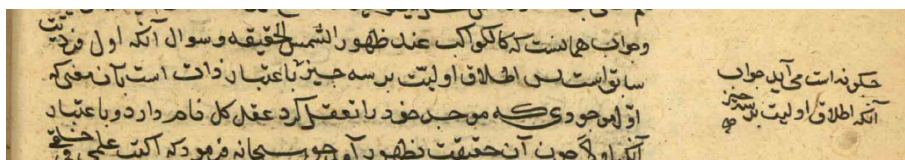 وجواب همانست که کالکواکب عند ظهور الشمس الحقیقه وسوال آنکه اول فردیت
سابق است پس اطلاق اولیت بر سه چیز باعتبار ذات است بآن معنی که
اول موجودی که موجد خود را تعقل کرد عقل کل نام دارد وباعتبار
آنکه اولا چون آن حقیقت بظهور آمد حق سبحانه فرمود که اکتب علمی فی خلقی
چکونه است می آید جواب
آنکه اطلاق اولیت بر سه چیز